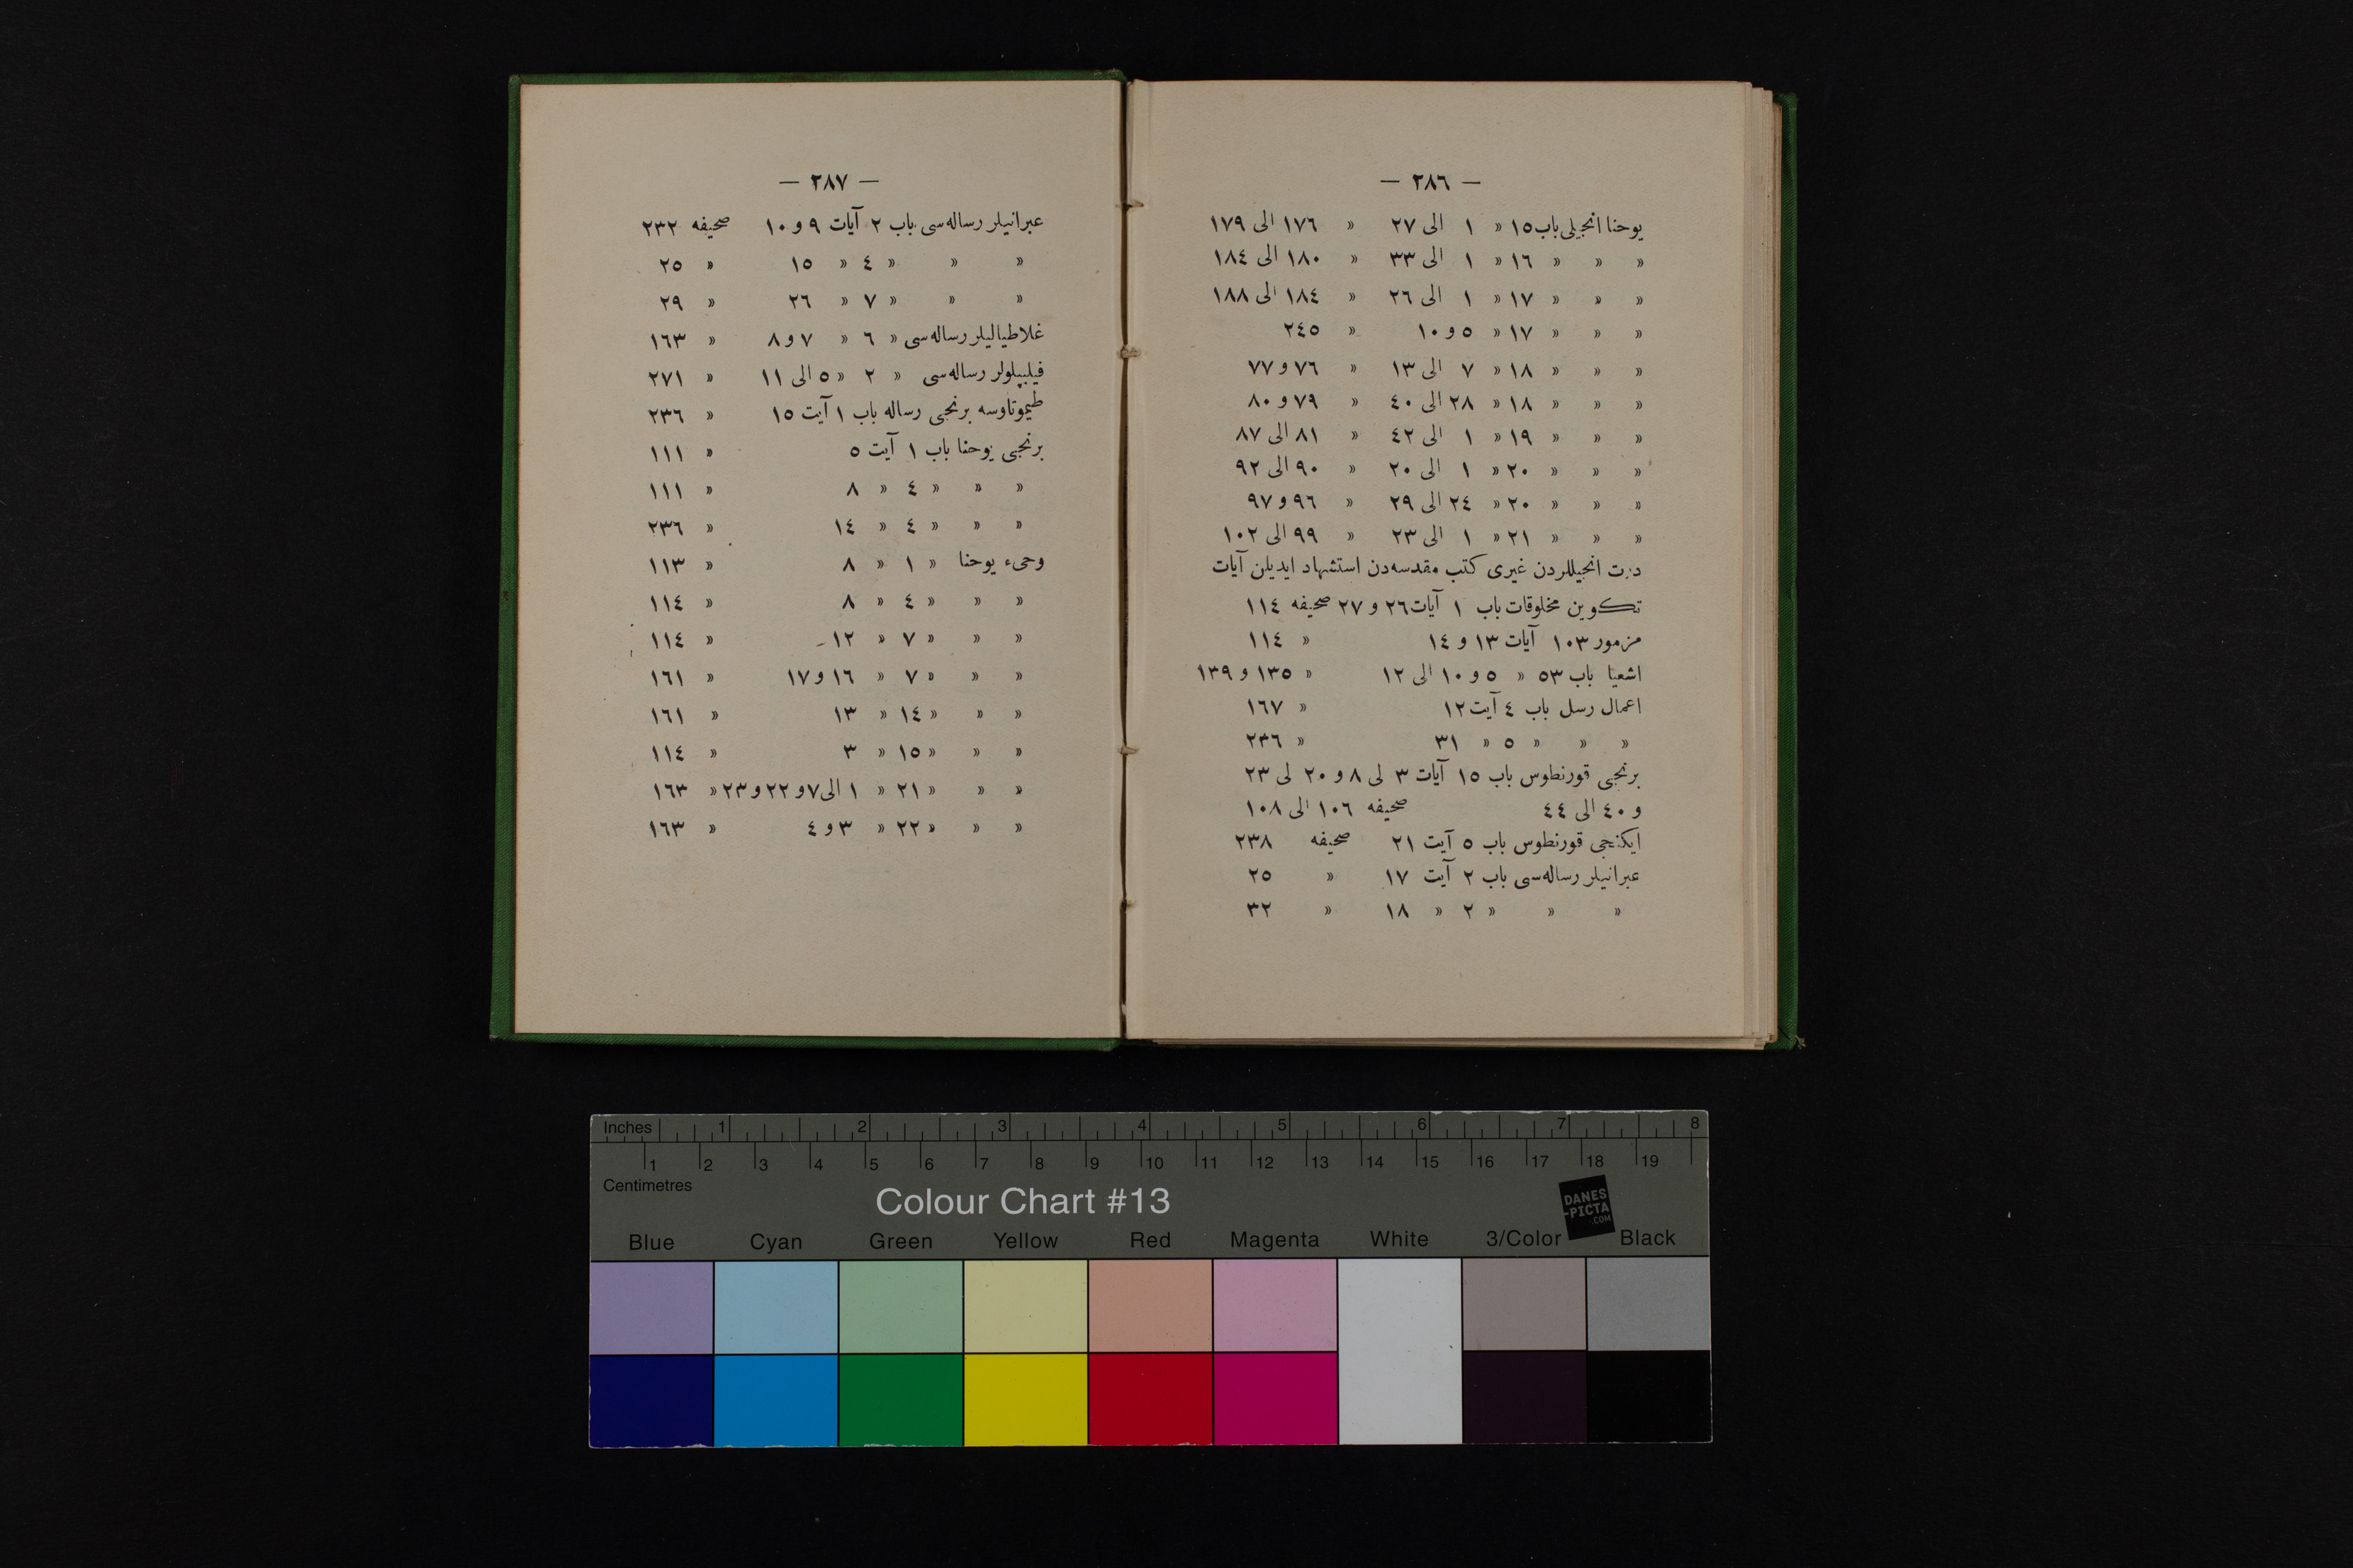 — ٢٨٦ —
يوحنا انجيلى باب ١٥ » ١ الى ٢٧ » ١٧٦ الى ١٧٩
» » » ١٦ » ١ الى ٣٣ » ١٨٠ الى ١٨٤
» » » ١٧ » ١ الى ٢٦ » ١٨٤ الى ١٨٨
» » » ١٧ » ٥ و ١٠ » ٢٤٥
» » » ١٨ » ٧ الى ١٣ » ٧٦ و ٧٧
» » » ١٨ » ٢٨ الى ٤٠ » ٧٩ و ٨٠
» » » ١٩ » ١ الى ٤٢ » ٨١ الى ٨٧
» » » ٢٠ » ١ الى ٢٠ » ٩٠ الى ٩٢
» » » ٢٠ » ٢٤ الى ٢٩ » ٩٦ و ٩٧
» » » ٢١ » ١ الى ٢٣ » ٩٩ الى ١٠٢
درت انجيللردن غيرى كتب مقدسه‌دن استشهاد ايديلن آيات
تكوين مخلوقات باب ١ آيات ٢٦ و ٢٧ صحيفه ١١٤
مزمور ١٠٣ آيات ١٣ و ١٤ » ١١٤
اشعيا باب ٥٣ » ٥ و ١٠ الى ١٢ » ١٣٥ و ١٣٩
اعمال رسل باب ٤ آيت ١٢ » ١٦٧
» » » ٥ » ٣١ » ٢٣٦
برنجى قورنطوس باب ١٥ آيات ٣ لى ٨ و ٢٠ لى ٢٣
و ٤٠ الى ٤٤ صحيفه ١٠٦ الى ١٠٨
ايكنجى قورنطوس باب ٥ آيت ٢١ صحيفه ٢٣٨
عبرانيلر رساله‌سى باب ٢ آيت ١٧ » ٢٥
» » » ٢ » ١٨ » ٣٢
— ٢٨٧ —
عبرانيلر رساله‌سى باب ٢ آيات ٩ و ١٠ صحيفه ٢٣٢
» » » ٤ » ١٥ » ٢٥
» » » ٧ » ٢٦ » ٢٩
غلاطياليلر رساله‌سى » ٦ » ٧ و ٨ » ١٦٣
فيليپيلولر رساله‌سى » ٢ » ٥ الى ١١ » ٢٧١
طيموتاوسه برنجى رساله باب ١ آيت ١٥ » ٢٣٦
برنجى يوحنا باب ١ آيت ٥ » ١١١
» » » ٤ » ٨ » ١١١
» » » ٤ » ١٤ » ٢٣٦
وحىء يوحنا » ١ » ٨ » ١١٣
» » » ٤ » ٨ » ١١٤
» » » ٧ » ١٢ » ١١٤
» » » ٧ » ١٦ و ١٧ » ١٦١
» » » ١٤ » ١٣ » ١٦١
» » » ١٥ » ٣ » ١١٤
» » » ٢١ » ١ الى ٧ و ٢٢ و ٢٣ » ١٦٣
» » » ٢٢ » ٣ و ٤ » ١٦٣
Inches 1 2 3 4 5 6 7 8
1 2 3 4 5 6 7 8 9 10 11 12 13 14 15 16 17 18 19
Centimetres
Colour Chart #13
DANES
-PICTA
.COM
Blue Cyan Green Yellow Red Magenta White 3/Color Black